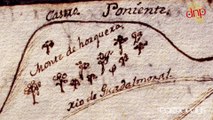 dnp
Casina Poniente
Monte de horquera
rio de Guadalmoral